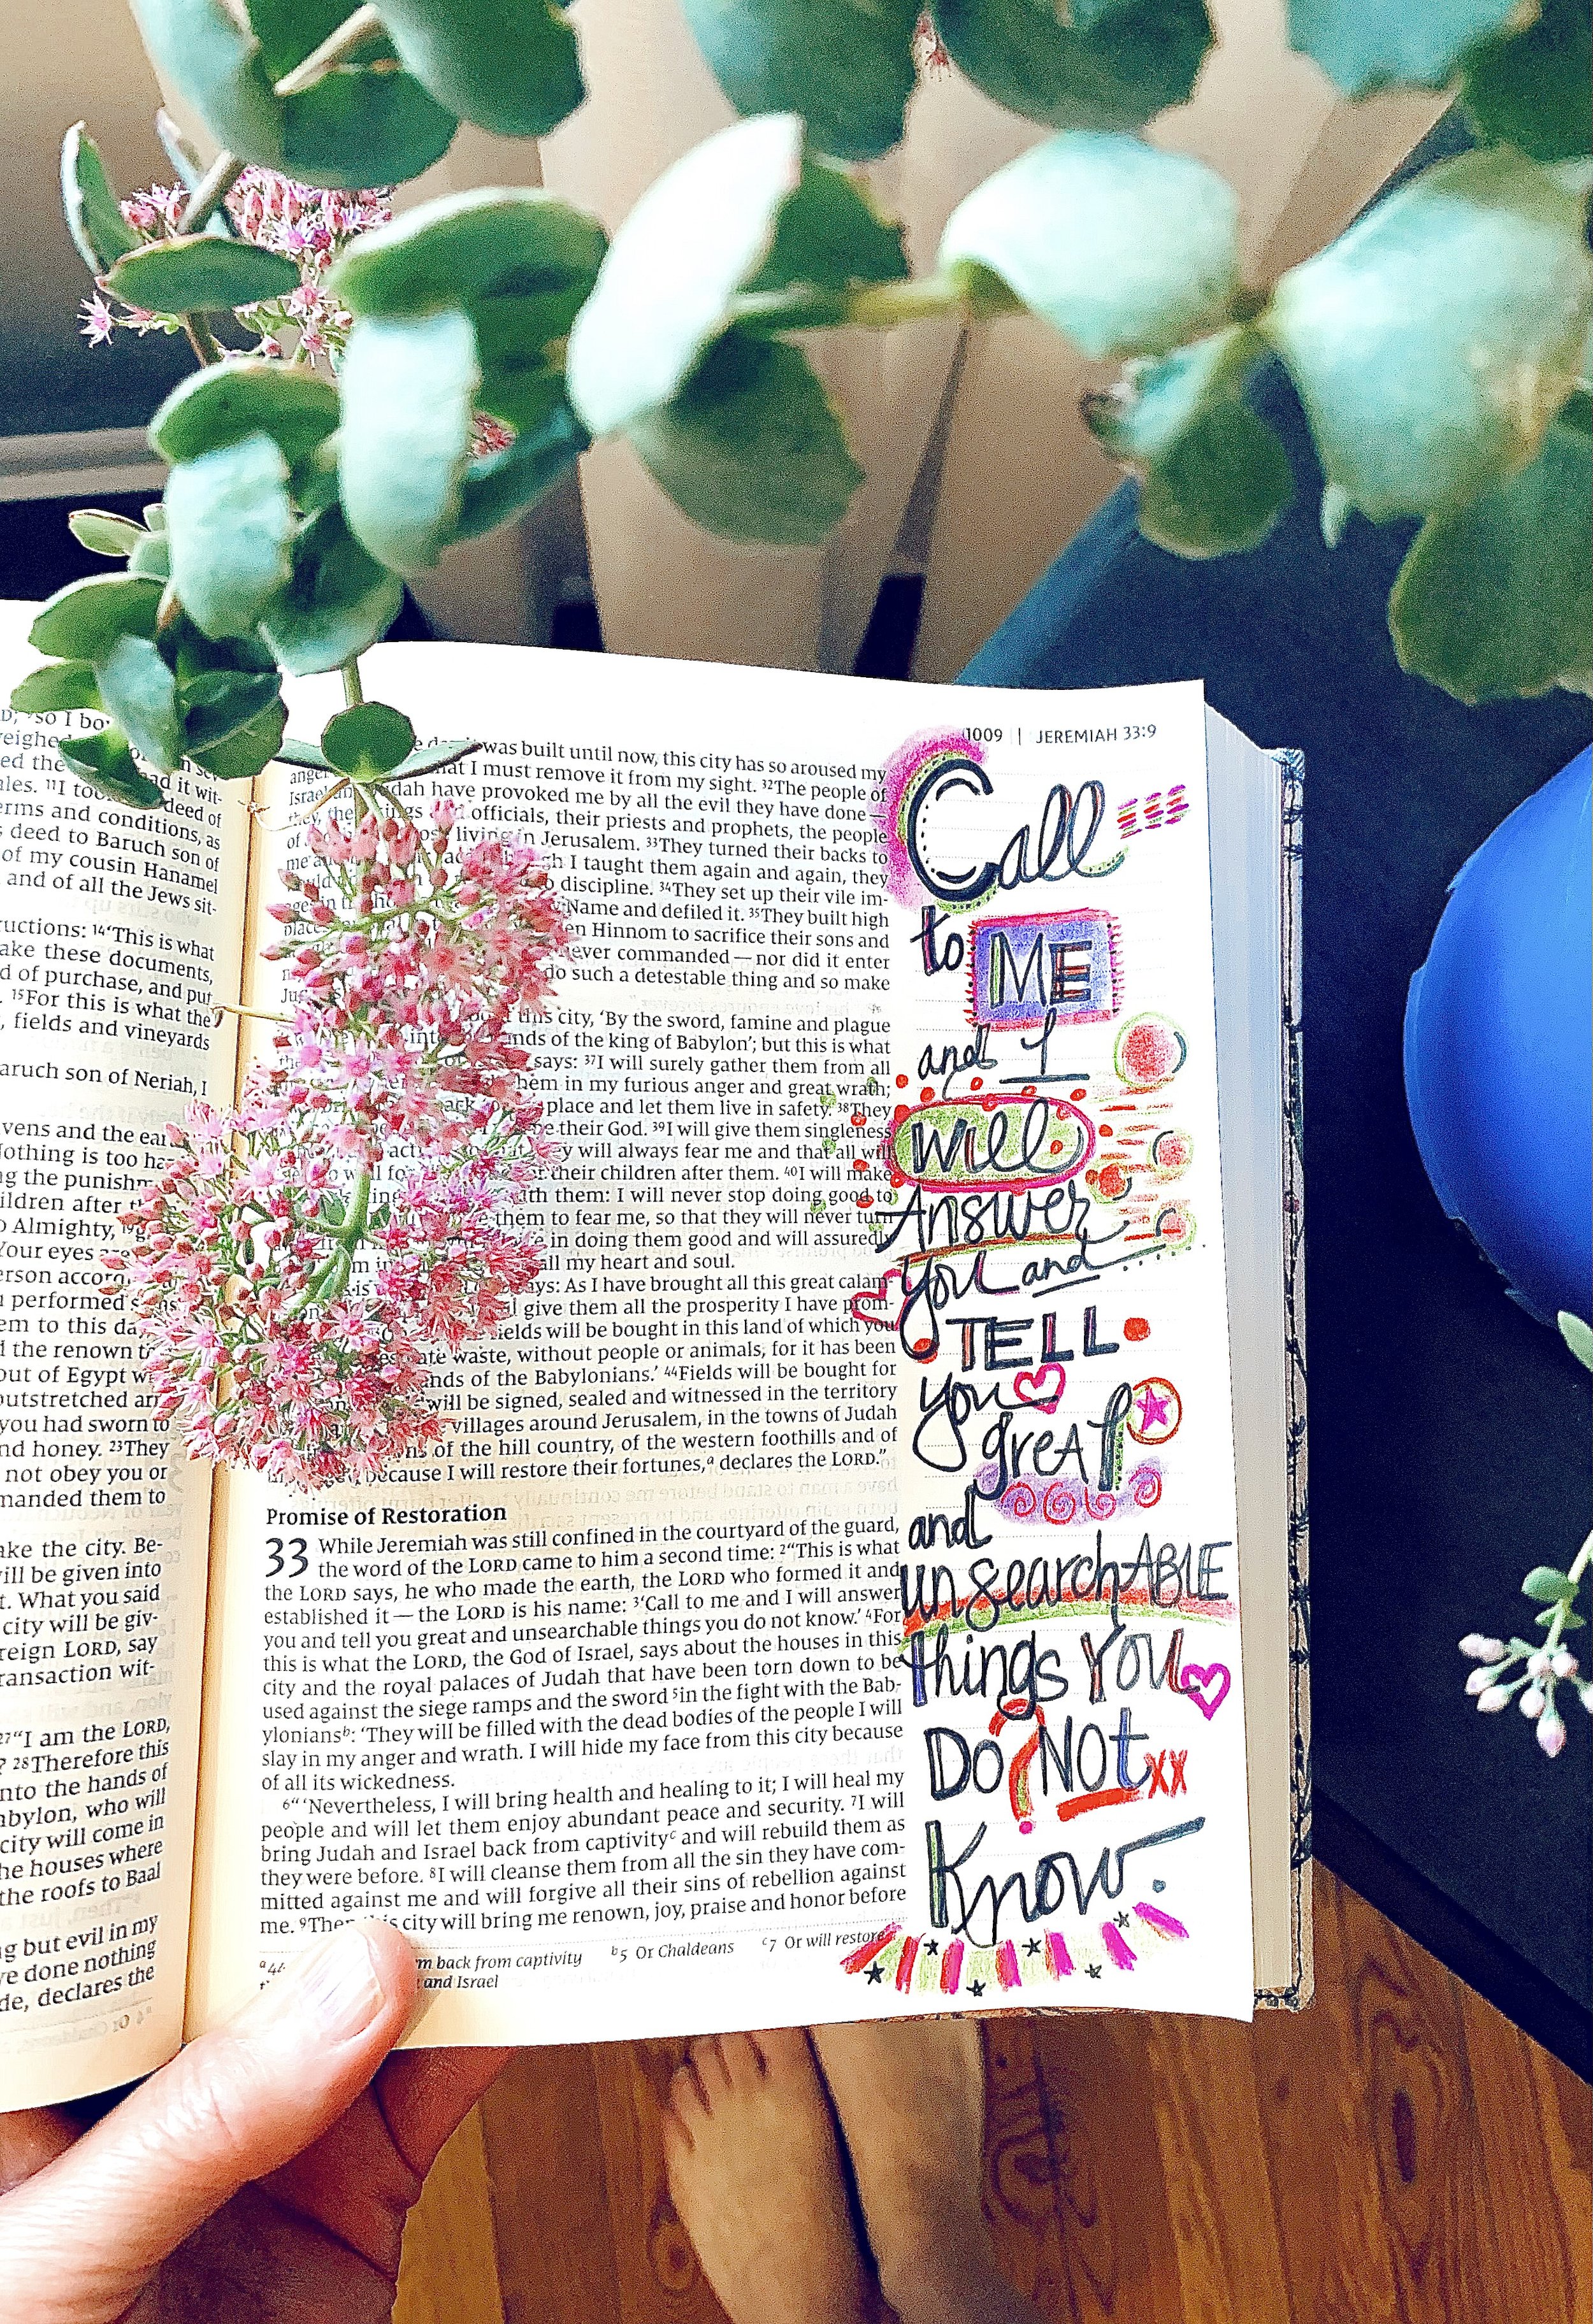 D; ⁹so I bo
ed the
ad it wit-
ales. ¹¹I too
deed of
erms and conditions, as
s deed to Baruch son of
of my cousin Hanamel
and of all the Jews sit-
ructions: ¹⁴“This is what
ake these documents,
d of purchase, and put
. ¹⁵For this is what the
, fields and vineyards
aruch son of Neriah, I
vens and the ear
Nothing is too ha
ng the punishm
ildren after t
D Almighty, ¹⁹g
Your eyes are
erson accord
u performed s
em to this da
d the renown t
out of Egypt w
outstretched ar
you had sworn to
nd honey. ²³They
not obey you or
manded them to
ake the city. Be-
ill be given into
t. What you said
city will be giv-
reign LORD, say
ransaction wit-
²⁷“I am the LORD,
? ²⁸Therefore this
nto the hands of
abylon, who will
city will come in
he houses where
the roofs to Baal
ng but evil in my
ve done nothing
de, declares the
1009 | JEREMIAH 33:9
was built until now, this city has so aroused my
anger
hat I must remove it from my sight. ³²The people of
Israel
dah have provoked me by all the evil they have done—
they, the
ings
officials, their priests and prophets, the people
of
living in Jerusalem. ³³They turned their backs to
me
I taught them again and again, they
discipline. ³⁴They set up their vile im-
Name and defiled it. ³⁵They built high
places
en Hinnom to sacrifice their sons and
never commanded—nor did it enter
do such a detestable thing and so make
this city, ‘By the sword, famine and plague
nds of the king of Babylon’; but this is what
says: ³⁷I will surely gather them from all
hem in my furious anger and great wrath;
place and let them live in safety. ³⁸They
be their God. ³⁹I will give them singleness
y will always fear me and that all will
their children after them. ⁴⁰I will make
ith them: I will never stop doing good to
them to fear me, so that they will never turn
in doing them good and will assuredly
all my heart and soul.
ays: As I have brought all this great calam-
give them all the prosperity I have prom-
ields will be bought in this land of which you
ate waste, without people or animals, for it has been
nds of the Babylonians.’ ⁴⁴Fields will be bought for
will be signed, sealed and witnessed in the territory
villages around Jerusalem, in the towns of Judah
ns of the hill country, of the western foothills and of
because I will restore their fortunes,ᵃ declares the LORD.”
Promise of Restoration
33 While Jeremiah was still confined in the courtyard of the guard,
the word of the LORD came to him a second time: ²“This is what
the LORD says, he who made the earth, the LORD who formed it and
established it—the LORD is his name: ³‘Call to me and I will answer
you and tell you great and unsearchable things you do not know.’ ⁴For
this is what the LORD, the God of Israel, says about the houses in this
city and the royal palaces of Judah that have been torn down to be
used against the siege ramps and the sword ⁵in the fight with the Bab-
yloniansᵇ: ‘They will be filled with the dead bodies of the people I will
slay in my anger and wrath. I will hide my face from this city because
of all its wickedness.
⁶“‘Nevertheless, I will bring health and healing to it; I will heal my
people and will let them enjoy abundant peace and security. ⁷I will
bring Judah and Israel back from captivityᶜ and will rebuild them as
they were before. ⁸I will cleanse them from all the sin they have com-
mitted against me and will forgive all their sins of rebellion against
me. ⁹Then this city will bring me renown, joy, praise and honor before
ᵃ44
m back from captivity ᵇ5 Or Chaldeans ᶜ7 Or will restore
and Israel
Call
to ME
and I
will
Answer
you and
TELL
you
greAt
and
unsearchABLE
things YOU
DO NOt xx
Know.